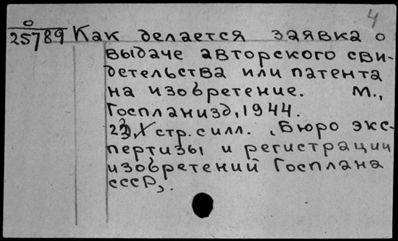 4
О
25789 Как делается заявка о
выдаче авторского сви-
детельства или патента
на изобретение. М.,
Госпланизд, 1944.
стр. с илл. (Бюро экс-
пертизы и регистрации
изобретений Госплана
СССР).